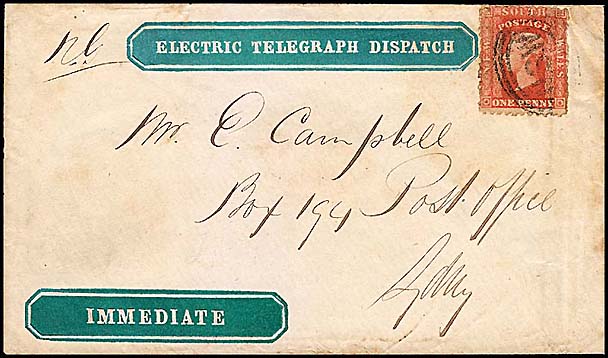 ELECTRIC TELEGRAPH DISPATCH
SOUTH
POSTAGE
WALES
ONE PENNY
Mr. C. Campbell
Box 194 Post Office
Sydny
IMMEDIATE